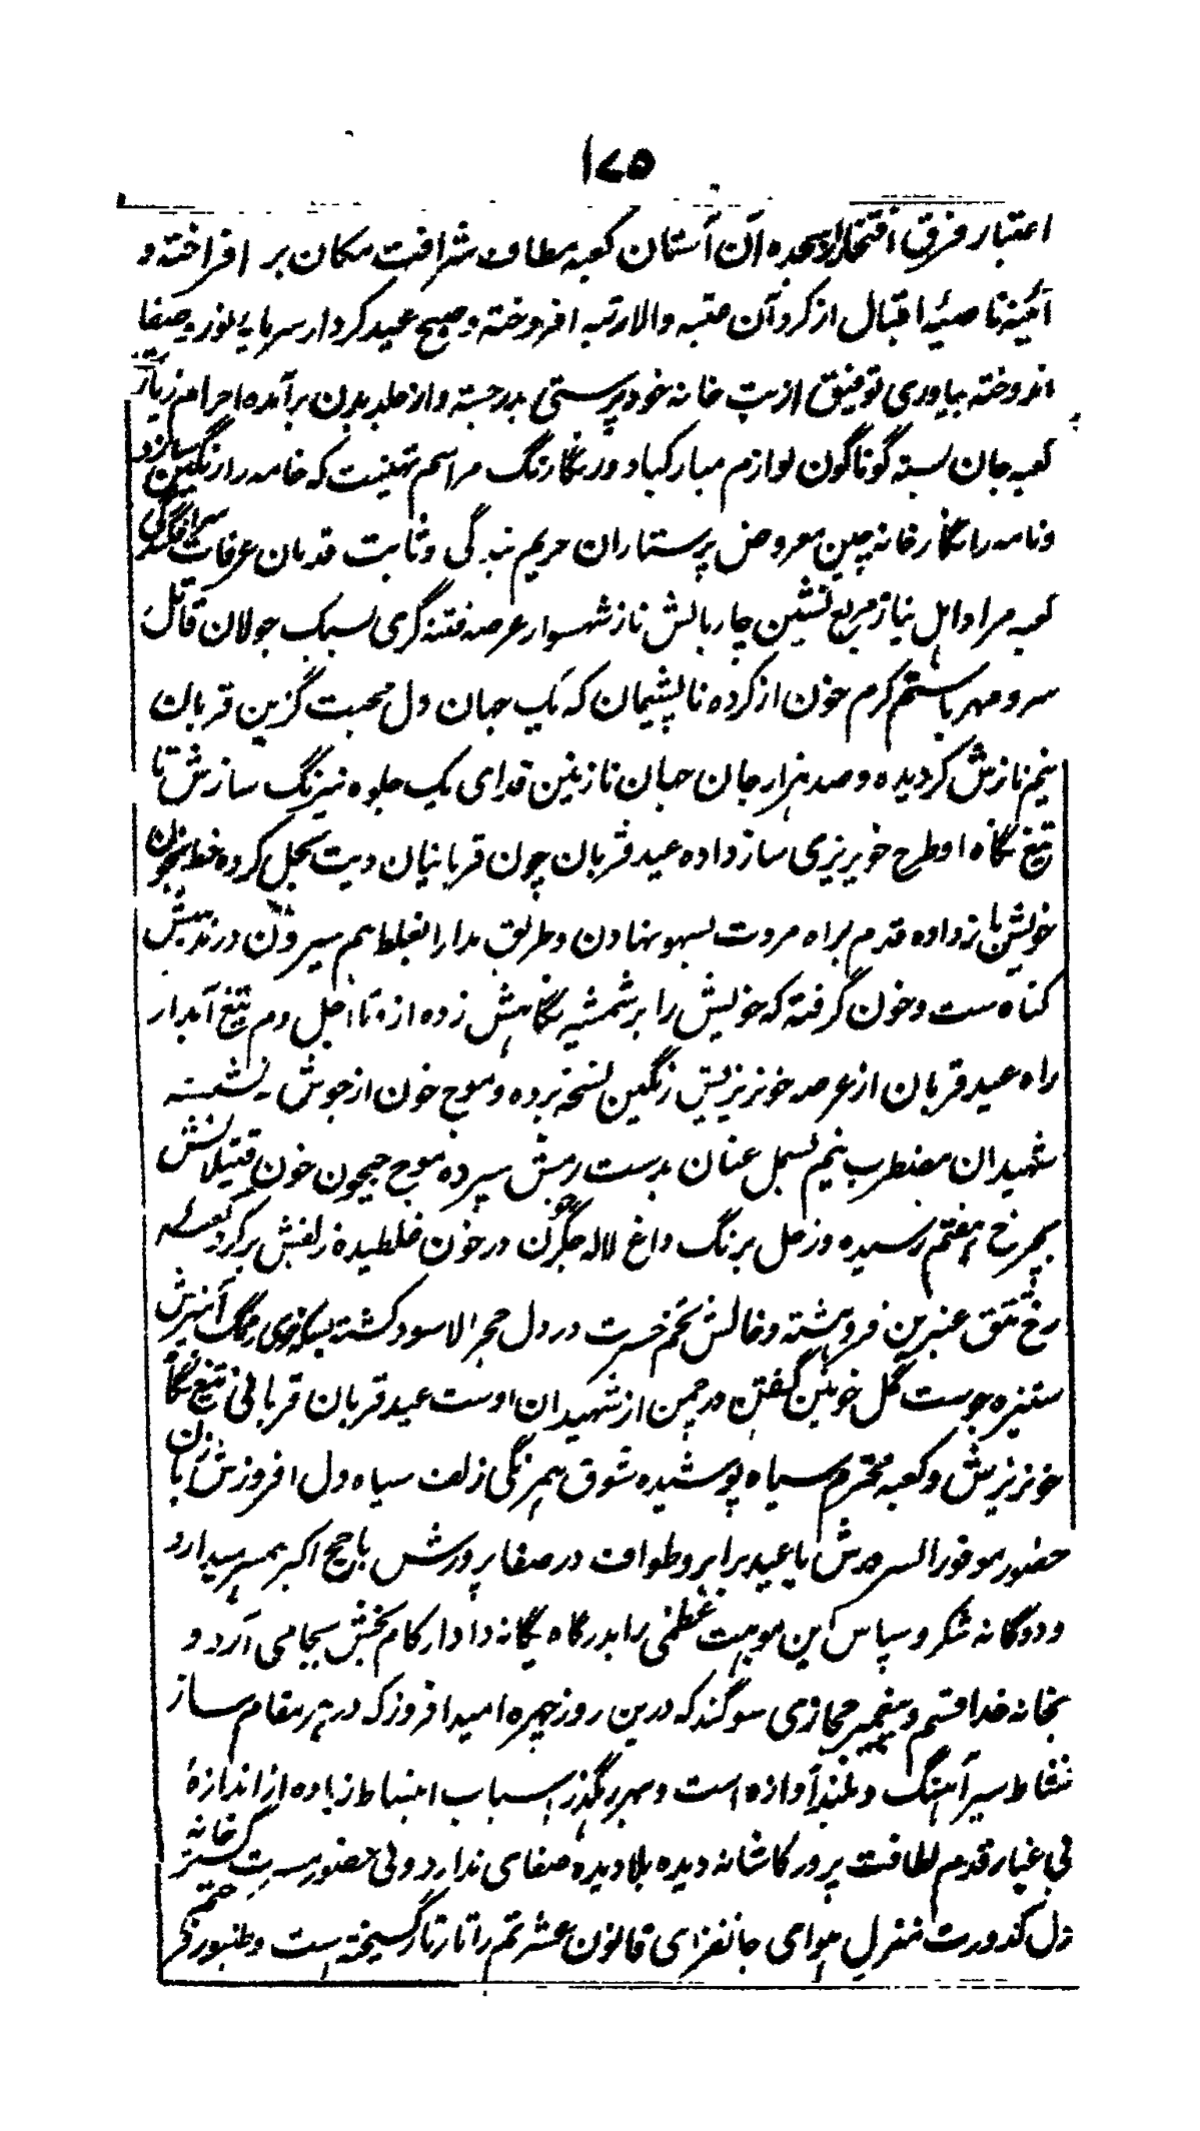 ۱۷۵
اعتبار فرق افتخار بسجده آن آستان کعبه مطاف شرافت مکان بر افراخته و
آئینه ناصیهٔ اقبال از گرد آن عتبه والا رتبه افروخته و صبح عید کردار سرمایه نور و صفا
اندوخته بیاوری توفیق از بت خانه خود پرستی بدر جسته و از جلد بدن برآمده احرام زیارت
کعبه جان بسته گوناگون لوازم مبارکباد و رنگارنگ مراسم تهنیت که خامه را رنگین سازد
و نامه را نگارخانه چین معروض پرستاران حریم بندگی و ثابت قدمان عرفات سرافگندگی
کعبه مراد اهل نیاز مربع نشین چاربالش ناز شهسوار عرصه فتنه گری سبک جولان قاتل
سرد مهر با ستم گرم خون از کرده ناپشیمان که یک جهان دل محبت گزین قربان
نیم نازش گردیده و صد هزار جان جهان نازنین فدای یک جلوه نیرنگ سازش تا
تیغ نگاه او طرح خونریزی ساز داده عید قربان چون قربانیان دیت بحل کرده خط بخون
خویش باز داده قدم براه مروت بسهو نهادن و طریق مدارا بغلط هم سپردن در مذهبش
گناه ست و خون گرفته که خویش را بر شمشیر نگاهش زده از تا اجل دم تیغ آبدار
راه عید قربان از عرصه خونریزیش رنگین نسخه برده و موج خون از جوش نشسته
شهیدان مضطرب نیم بسمل عنان بدست رمش سپرده موج جیحون خون قتیلانش
بچرخ هفتم رسیده و زحل برنگ داغ لاله جگرگون در خون غلطیده زلفش بر گرد کعبه
رخ تتق عنبرین فروهشته و خالش تخم حسرت در دل حجر الاسود کشته رنگ آمیزش
ستیزه جوست گل خونین کفن در چمن از شهیدان اوست عید قربان قربانی تیغ نگاه
خونریزش و کعبه محترم سیاه پوشیده شوق همرنگی زلف سیاه دل افروزش بازن
حضور موفور السرورش با عید برابر و طواف در صفا پرورش با حج اکبر همسر میدارد
و دوگانه شکر و سپاس این موهبت عظمی را بدرگاه یگانه دادار کام بخش بجا می آرد و
بخانه خدا قسم و پیغمبر حجازی سوگند که درین روز چهره امید افروز که در هر مقام ساز
نشاط سیر آهنگ و بلند آوازه است و بهر رهگذر اسباب انبساط زیاده از اندازهٔ
بی غبار قدم لطافت پرور کاشانه دیده بلا دیده صفای ندارد و بی حضور مسرت گستر خانه
دل کدورت منزل هوای جانفزای قانون عشرتم را تار تار گسیخته است و طنبور خرمی